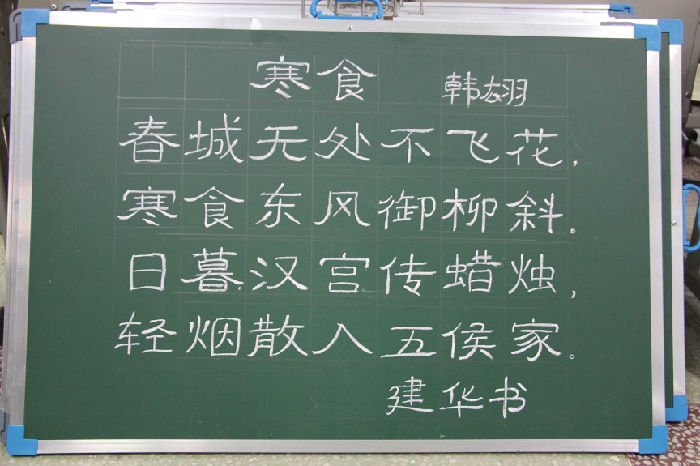 寒食 韩翃
春城无处不飞花，
寒食东风御柳斜。
日暮汉宫传蜡烛，
轻烟散入五侯家。
建华书